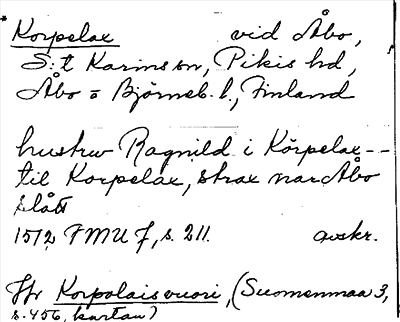 * Korpelax vid Åbo,
S:t Karins sn, Pikis hd,
Åbo o Björneb. l., Finland
hustrw Ragnild i Körpelax --
til Korpelax, strax nar Åbo
slått
1512, FMU 7, s. 211. avskr.
Jfr Korpolaisvuori, (Suomenmaa 3,
s. 456, kartan)